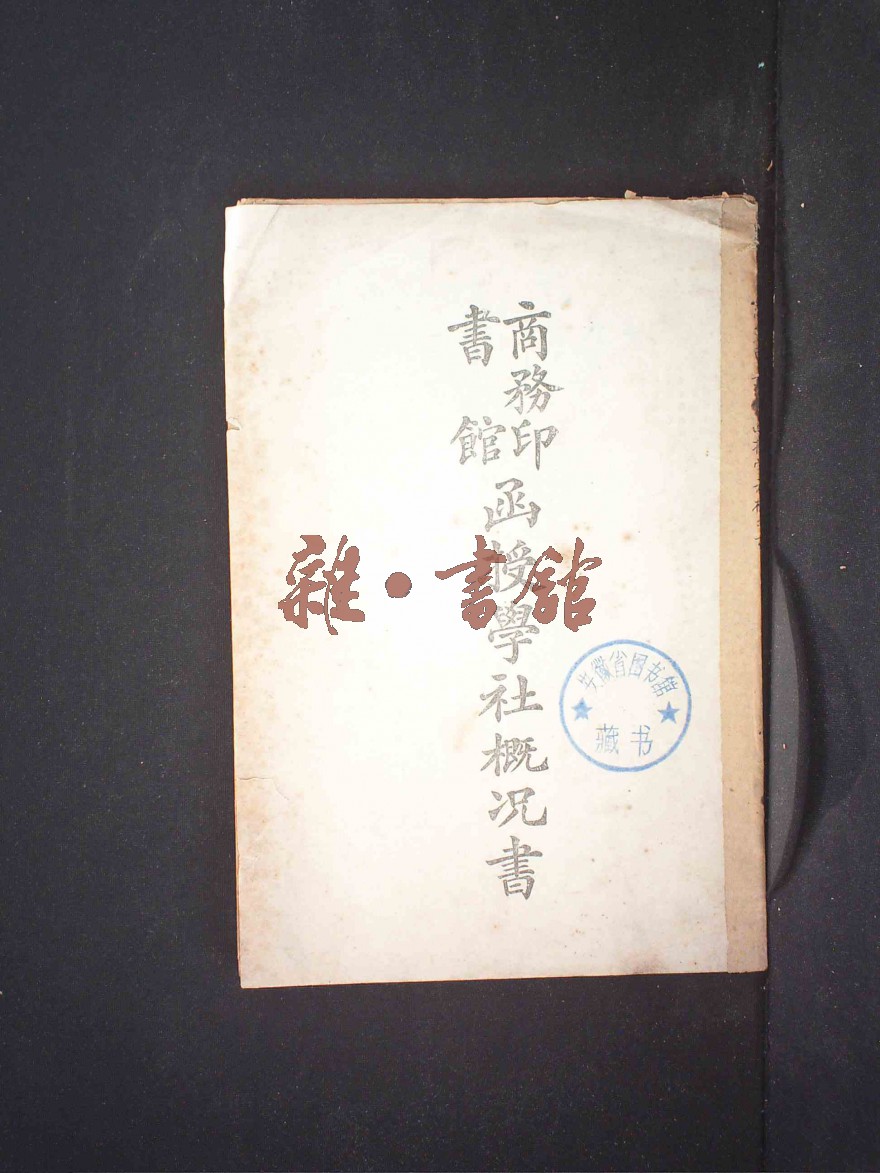 商務印
書館
函授學社概况書
雜·書館
安徽省图书馆
藏书